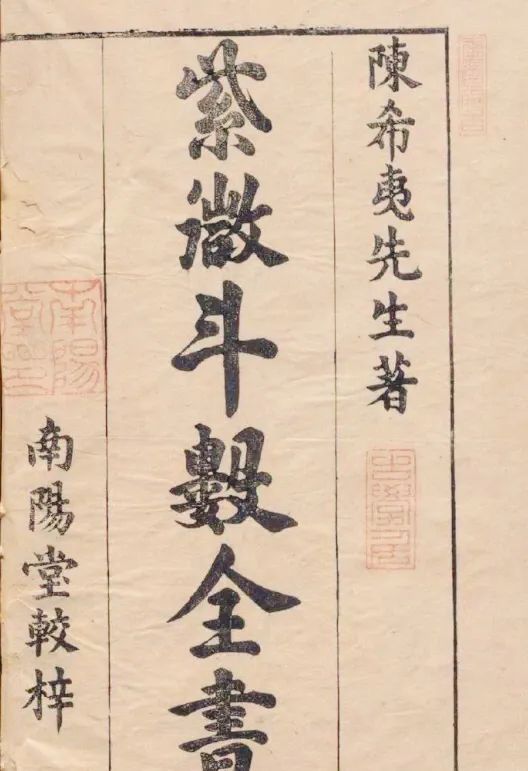 陳希夷先生著
紫微斗數全書
南陽堂較梓
南陽